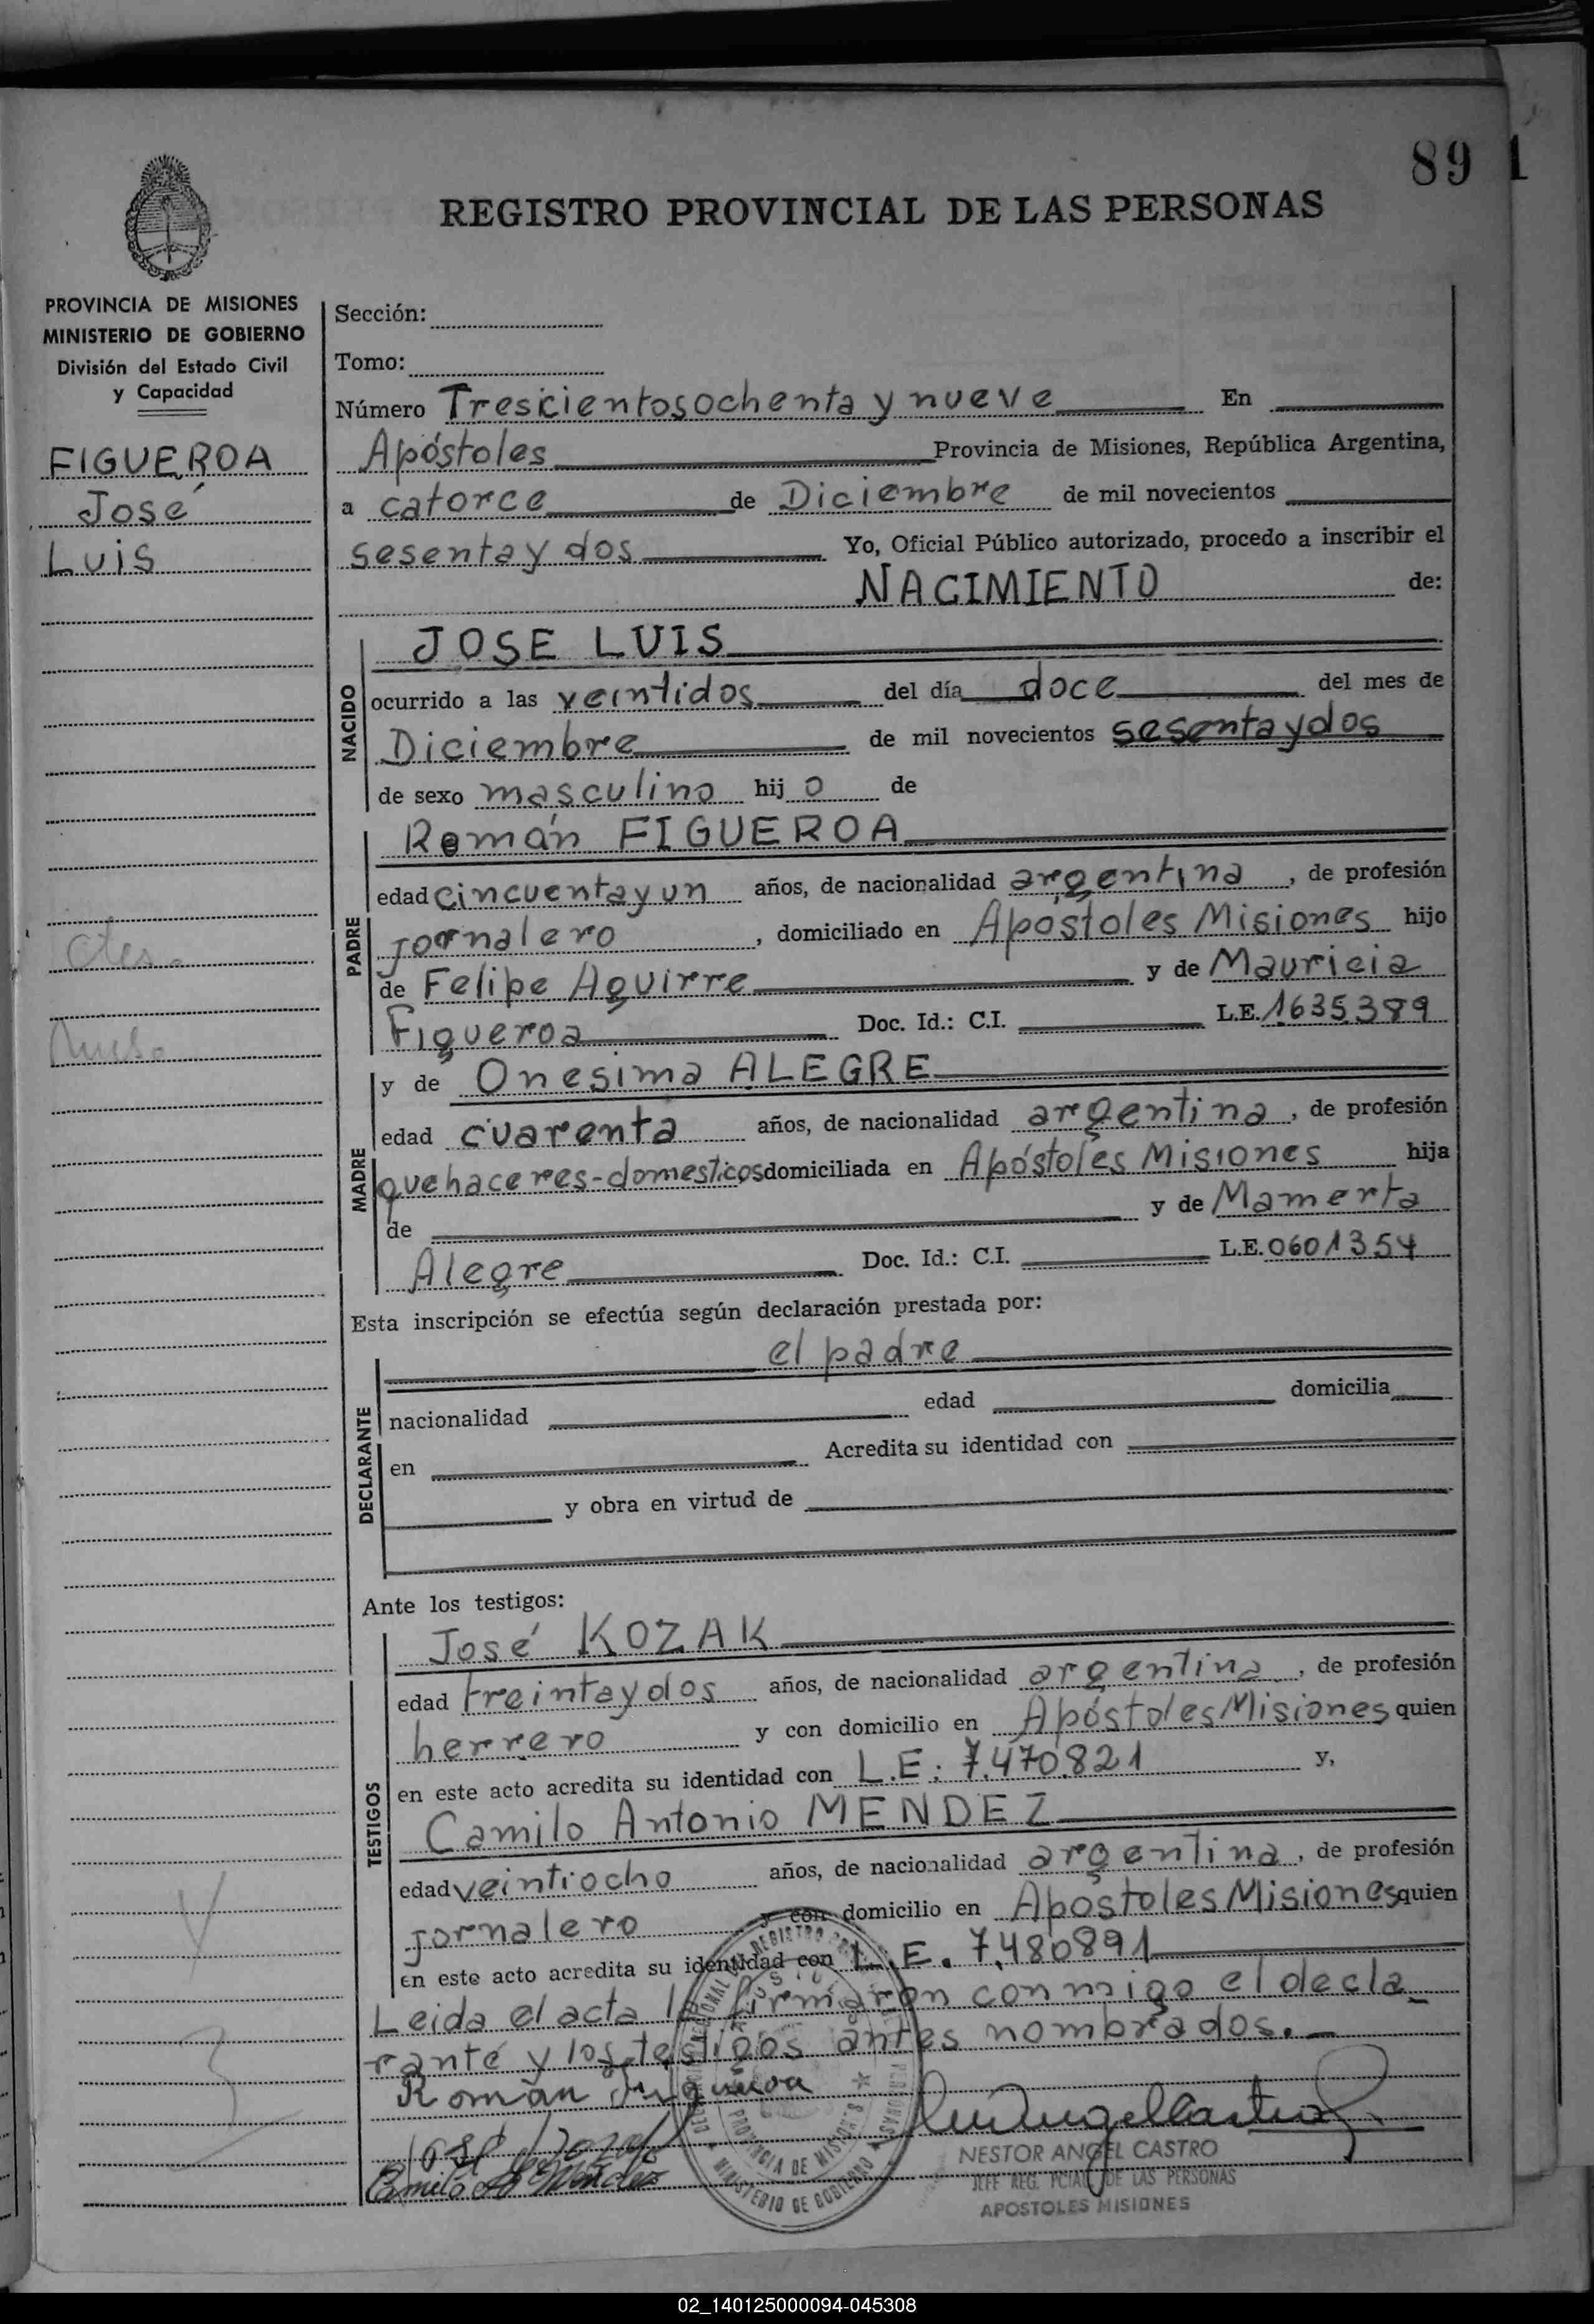 89 1
REGISTRO PROVINCIAL DE LAS PERSONAS
PROVINCIA DE MISIONES
MINISTERIO DE GOBIERNO
División del Estado Civil
y Capacidad
FIGUEROA
José
Luis
Sección:
Tomo:
Número Trescientosochenta y nueve En
Apóstoles Provincia de Misiones, República Argentina,
a catorce de Diciembre de mil novecientos
sesenta y dos Yo, Oficial Público autorizado, procedo a inscribir el
NACIMIENTO de:
NACIDO
JOSE LUIS
ocurrido a las veintidos del día doce del mes de
Diciembre de mil novecientos sesentaydos
de sexo masculino hij o de
PADRE
Román FIGUEROA
edad cincuentayun años, de nacionalidad argentina, de profesión
jornalero, domiciliado en Apostoles Misiones hijo
de Felipe Aguirre y de Mauricia
Figueroa Doc. Id.: C.I. L.E. 1635389
MADRE
y de Onesima ALEGRE
edad cuarenta años, de nacionalidad argentina, de profesión
quehaceres-domesticos domiciliada en Apóstoles Misiones hija
de y de Mamerta
Alegre Doc. Id.: C.I. L.E. 0601354
Esta inscripción se efectúa según declaración prestada por:
DECLARANTE
el padre
nacionalidad edad domicilia
en Acredita su identidad con
y obra en virtud de
Ante los testigos:
TESTIGOS
José KOZAK
edad treintaydos años, de nacionalidad argentina, de profesión
herrero y con domicilio en Apóstoles Misiones quien
en este acto acredita su identidad con L.E: 7.470.821 y,
Camilo Antonio MENDEZ
edad veintiocho años, de nacionalidad argentina, de profesión
jornalero y con domicilio en Apostoles Misiones quien
en este acto acredita su identidad con L.E. 7.480891
Leida el acta la firmaron conmigo el decla_
rante y los testigos antes nombrados.
Román Figueroa
Camilo A Mendez
NESTOR ANGEL CASTRO
JEFE REG. PCIAL DE LAS PERSONAS
APOSTOLES MISIONES
PROVINCIA DE MISIONES
MINISTERIO DE GOBIERNO
02_140125000094-045308